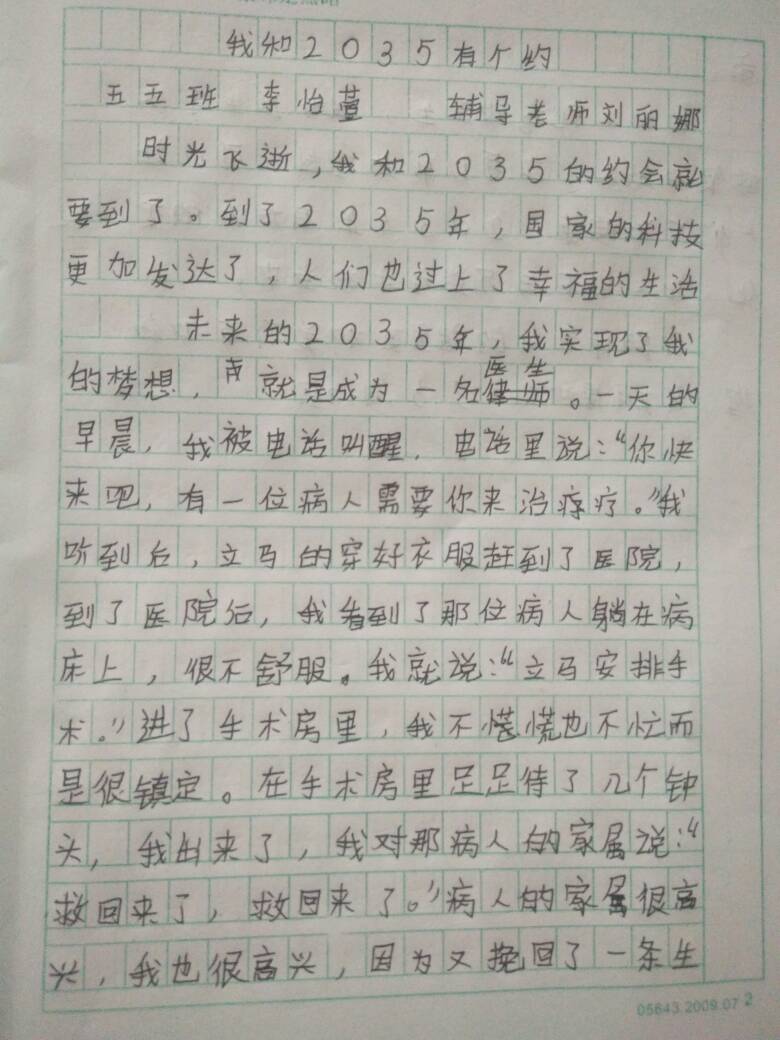 我和2035有个约
五五班 李怡萱 辅导老师刘丽娜
时光飞逝,我和2035的约会就
要到了。到了2035年,国家的科技
更加发达了,人们也过上了幸福的生活
未来的2035年,我实现了我
的梦想,就是成为一名医生。一天的
早晨,我被电话叫醒,电话里说:“你快
来吧,有一位病人需要你来治疗。”我
听到后,立马的穿好衣服赶到了医院,
到了医院后,我看到了那位病人躺在病
床上,很不舒服。我就说:“立马安排手
术。”进了手术房里,我不慌也不忙而
是很镇定。在手术房里足足待了几个钟
头,我出来了,我对那病人的家属说:“
救回来了,救回来了。”病人的家属很高
兴,我也很高兴,因为又挽回了一条生
05643.2009.07 2